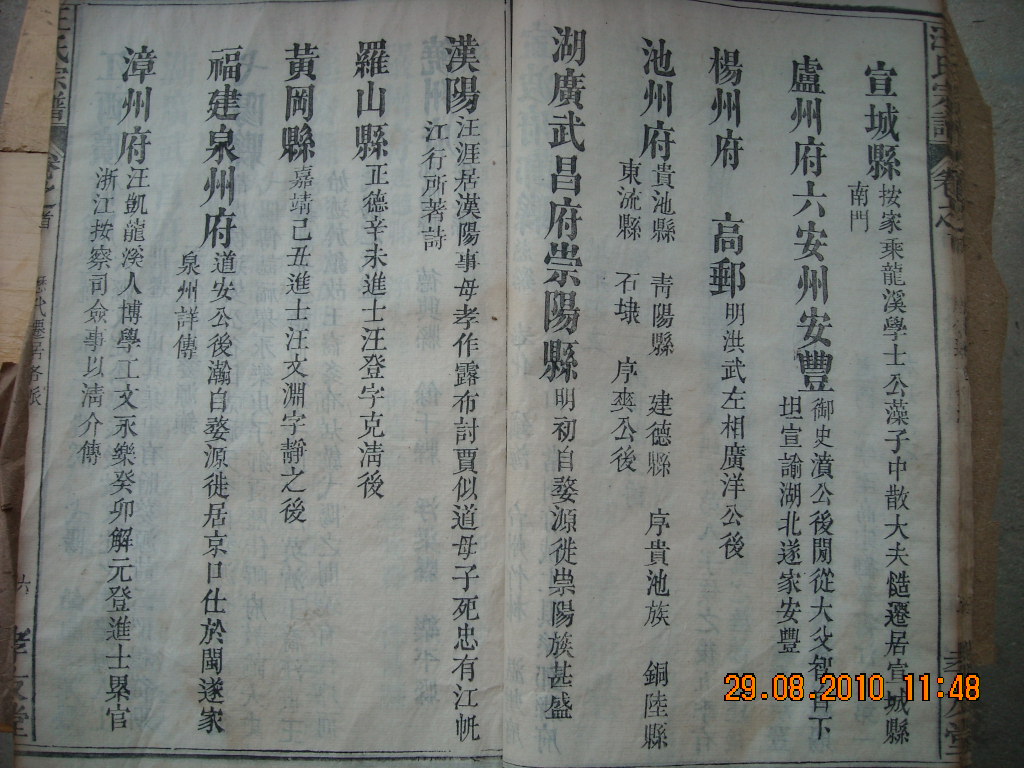 宣城縣
按家乘龍溪學士公藻子中散大夫愷遷居宣城縣
南門
盧州府六安州安豐
御史濆公後閒從大父智官下
坦宣諭湖北遂家安豐
楊州府 高郵
明洪武左相廣洋公後
池州府
貴池縣 青陽縣 建德縣 序貴池族 銅陸縣
東流縣 石埭 序奭公後
湖廣武昌府崇陽縣
明初自婺源徙崇陽族甚盛
漢陽
汪涯居漢陽事母孝作露布討賈似道母子死忠有江帆
江行所著詩
羅山縣
正德辛未進士汪登字克清後
黃岡縣
嘉靖己丑進士汪文淵字靜之後
福建泉州府
道安公後瀚自婺源徙居京口仕於閩遂家
泉州詳傳
漳州府
汪凱龍溪人博學工文永樂癸卯解元登進士累官
浙江按察司僉事以清介傳
汪氏宗譜
卷之首
歷代遷居各派
六
29.08.2010 11:48